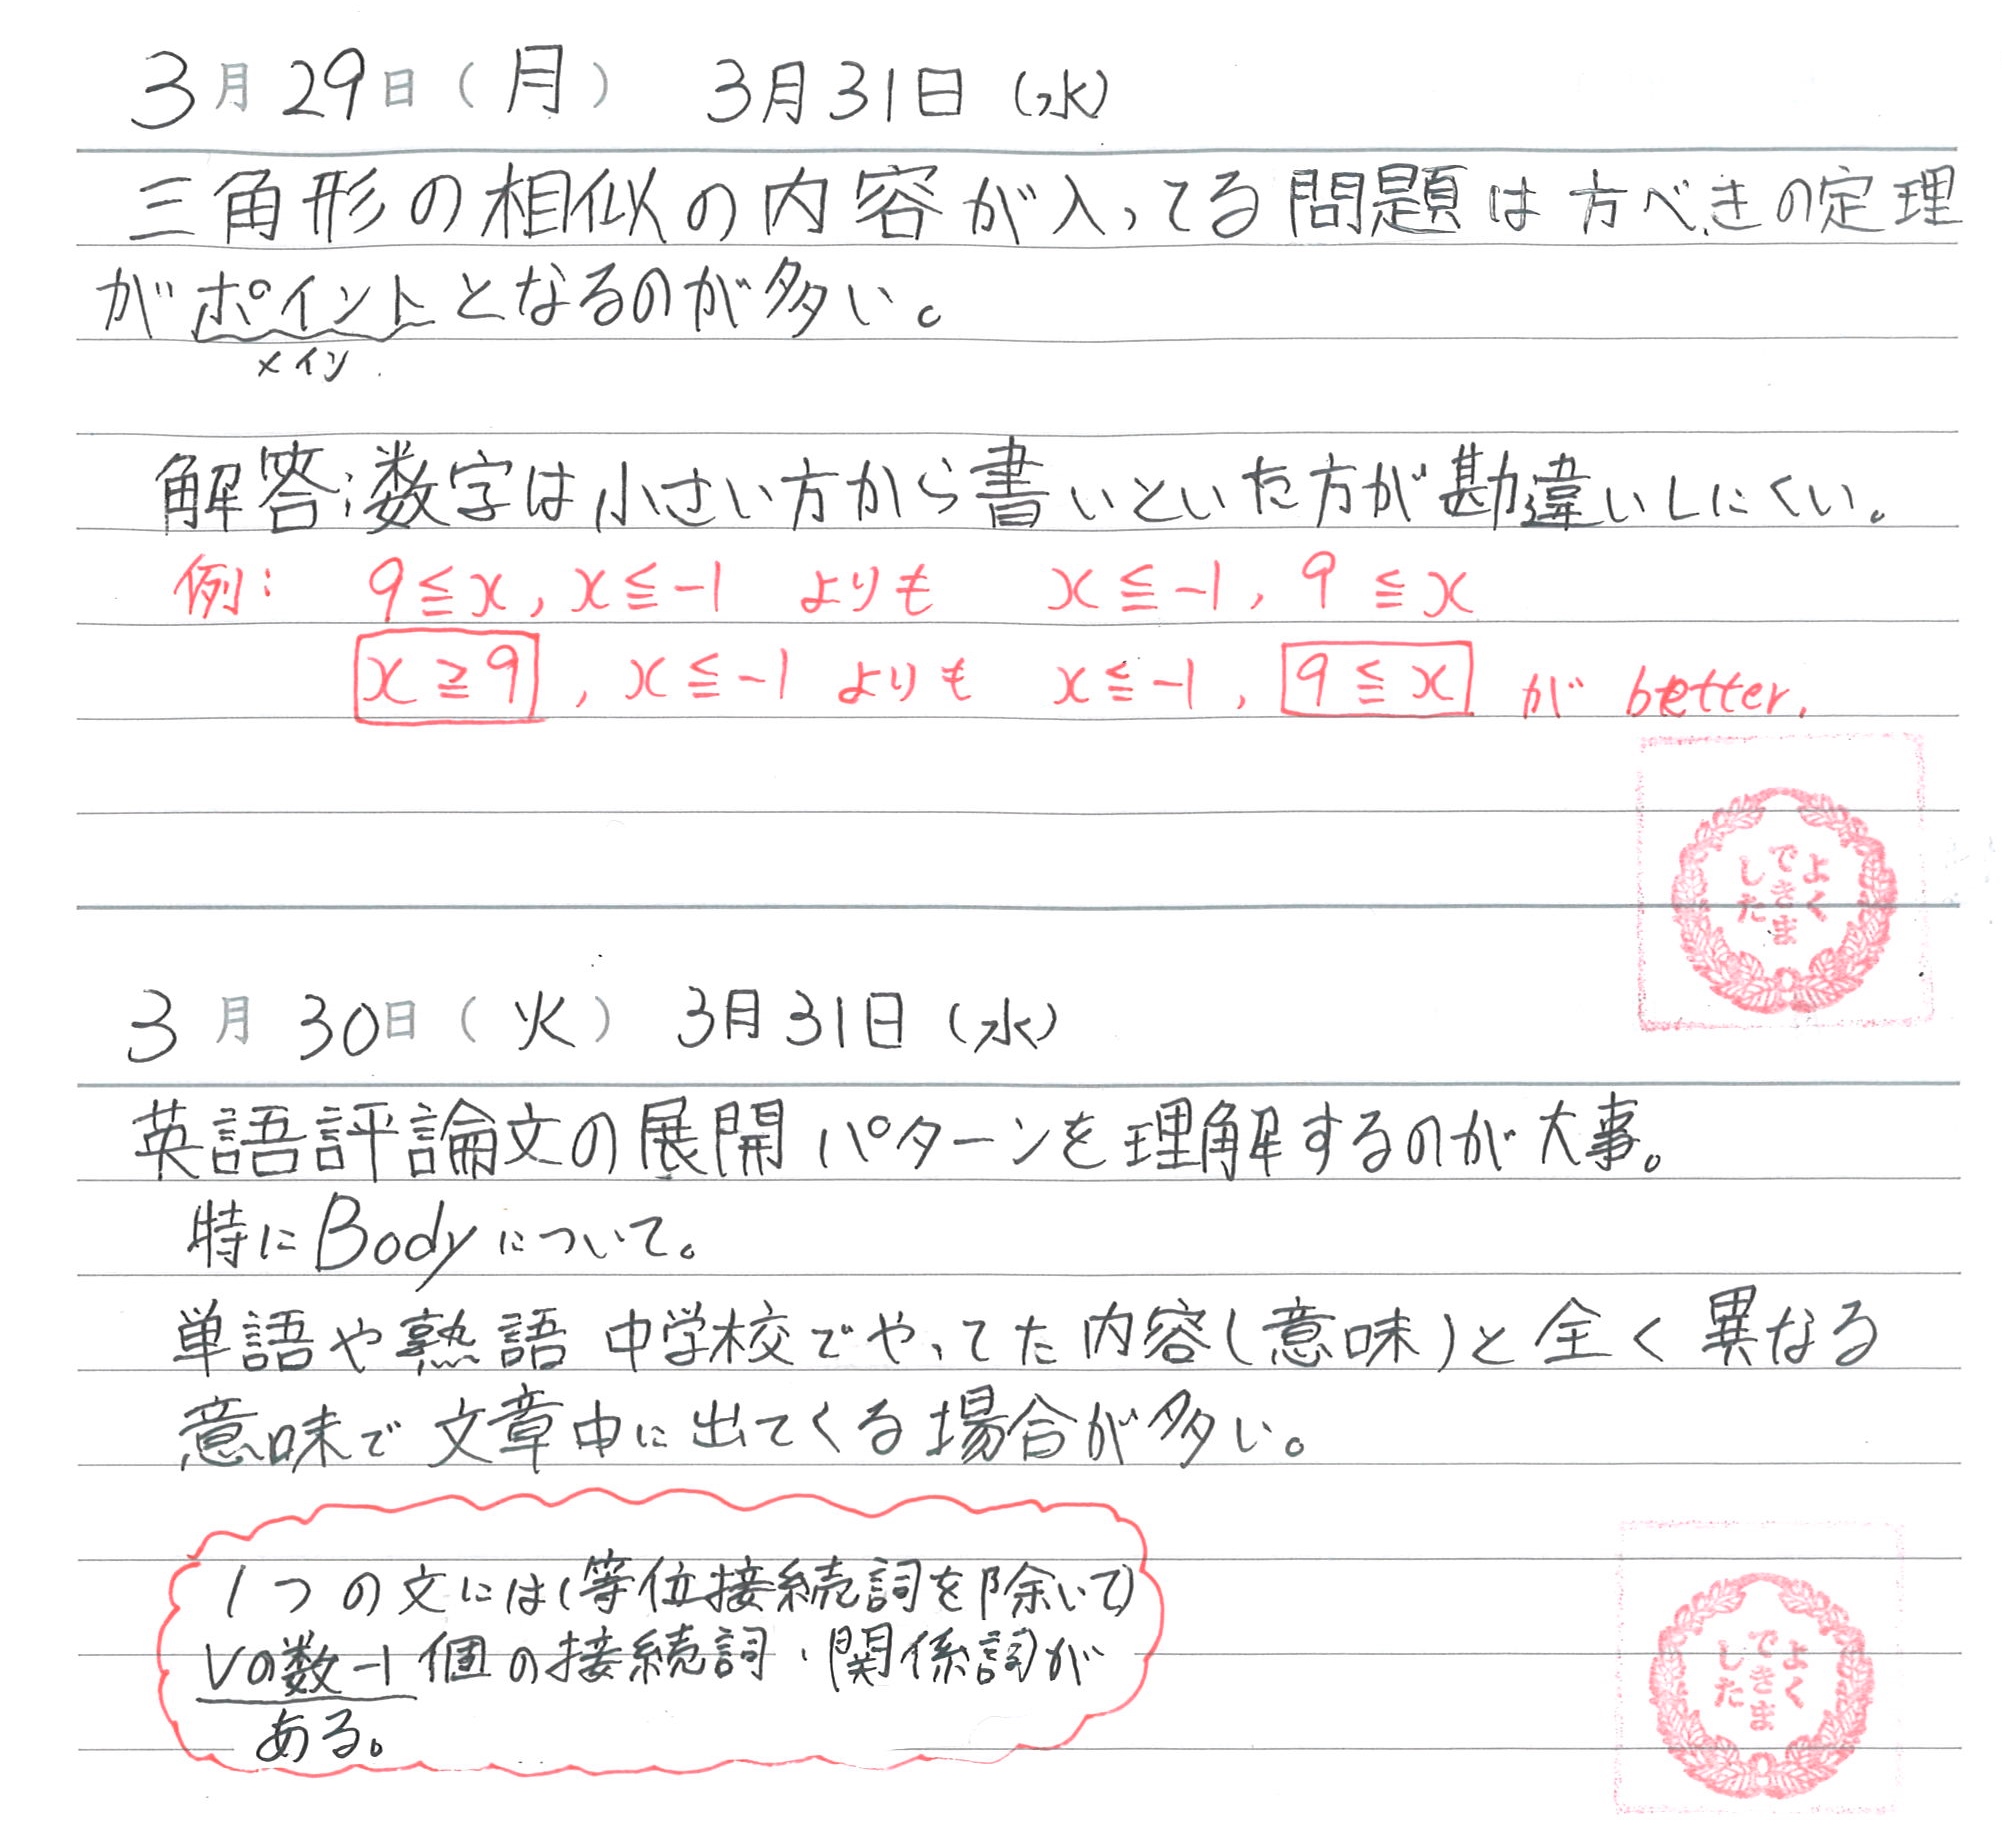 3月29日(月) 3月31日(水)
三角形の相似の内容が入ってる問題は方べきの定理
がポイントとなるのが多い。
メイン
解答;数字は小さい方から書いといた方が勘違いしにくい。
例: 9≦x, x≦-1 よりも x≦-1, 9≦x
x≧9, x≦-1 よりも x≦-1, 9≦x が better.
よく
できま
した
3月30日(火) 3月31日(水)
英語評論文の展開パターンを理解するのが大事。
特にBodyについて。
単語や熟語 中学校でやってた内容(意味)と全く異なる
意味で文章中に出てくる場合が多い。
1つの文には(等位接続詞を除いて)
Vの数-1個の接続詞・関係詞が
ある。
よく
できま
した